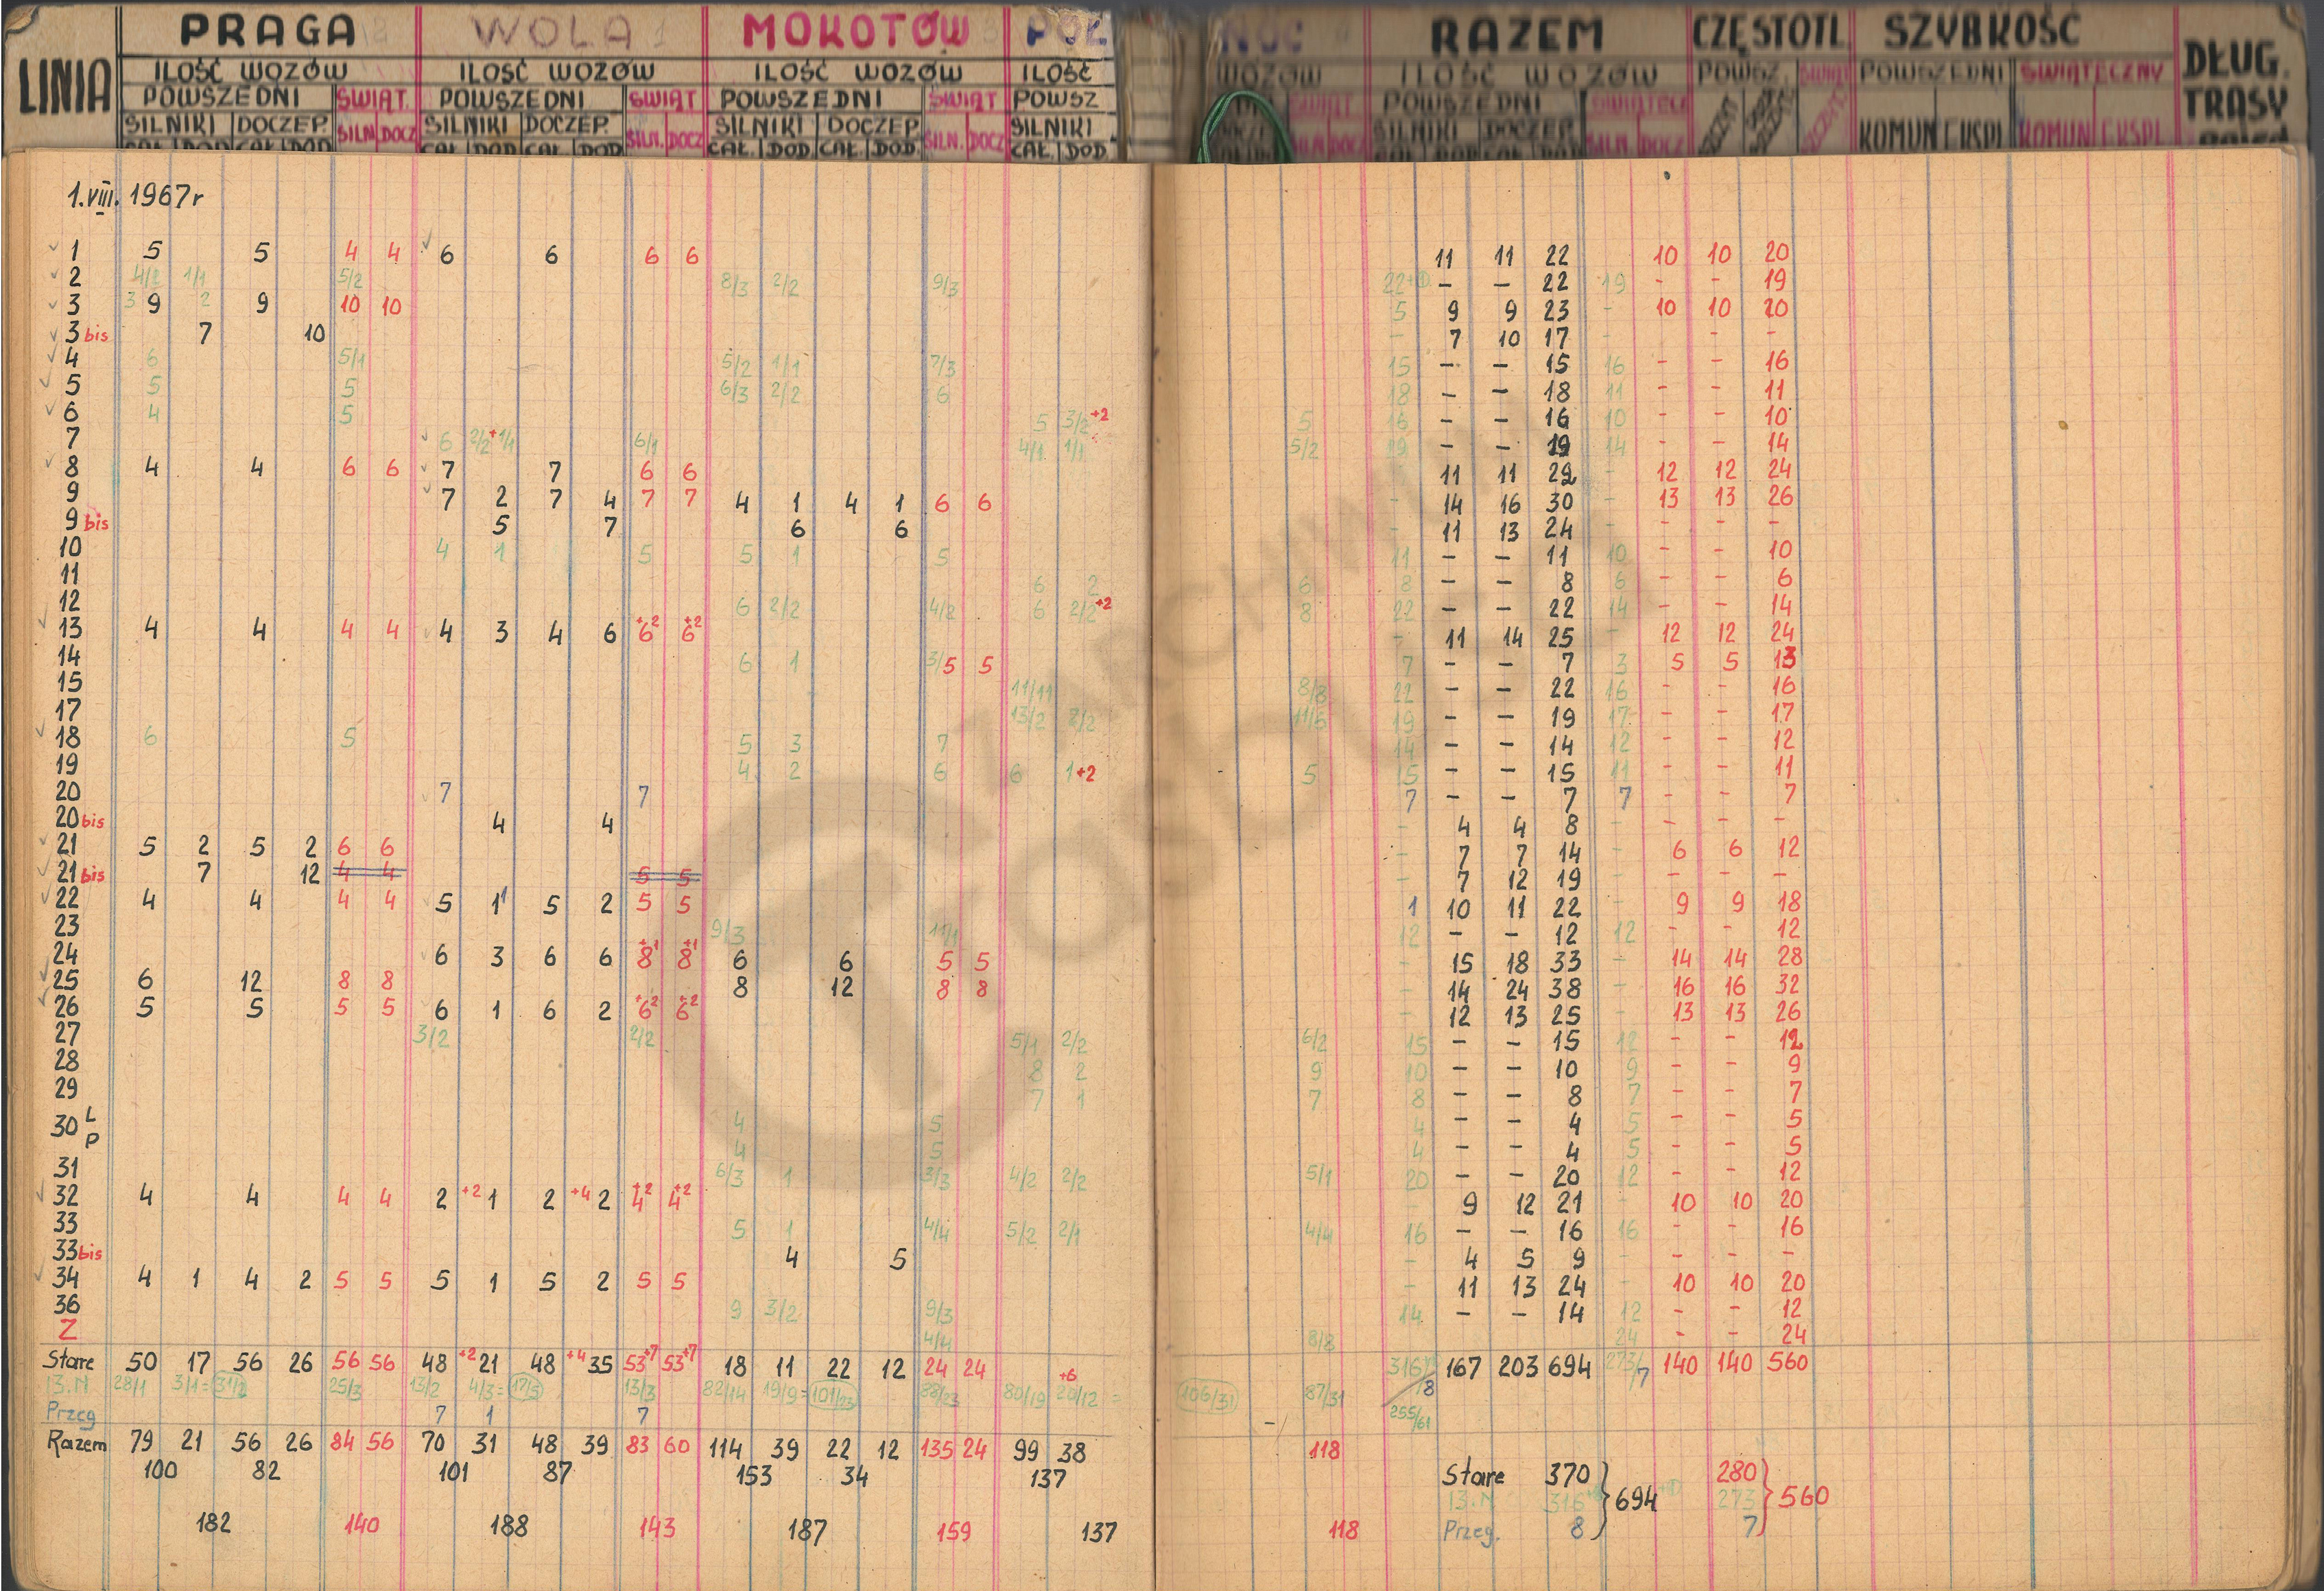 LINIA PRAGA WOLA MOKOTÓW PÓŁ NOC RAZEM CZĘSTOTL SZYBKOŚĆ DŁUG. TRASY
ILOŚĆ WOZÓW ILOŚĆ WOZÓW ILOŚĆ WOZÓW ILOŚĆ WOZÓW ILOŚĆ WOZÓW POWSZ. ŚWIĄT POWSZEDNI ŚWIĄTECZNY
POWSZEDNI ŚWIĄT. POWSZEDNI ŚWIĄT POWSZEDNI ŚWIĄT POWSZ ŚWIĄT POWSZEDNI ŚWIĄTECZ
SILNIKI DOCZEP. SILN DOCZ SILNIKI DOCZEP. SILN. DOCZ SILNIKI DOCZEP SILN. DOCZ SILNIKI SILN DOCZ SILNIKI DOCZEP SILN DOCZ KOMUN EKSPL KOMUN EKSPL
CAŁ. DOD CAŁ. DOD CAŁ. DOD. CAŁ DOD CAŁ. DOD. CAŁ. DOD. CAŁ. DOD.
1.VIII. 1967r
1 5 5 4 4 6 6 6 6 11 11 22 10 10 20
2 4/2 1/1 5/2 8/3 2/2 9/3 22+① - - 22 19 - - 19
3 3 9 2 9 10 10 5 9 9 23 - 10 10 20
3 bis 7 10 - 7 10 17 - - -
4 6 5/1 5/2 1/1 7/3 15 - - 15 16 - - 16
5 5 5 6/3 2/2 6 18 - - 18 11 - - 11
6 4 5 5 3/2 +2 5 16 - - 16 10 - - 10
7 6 2/2 +1/1 6/1 4/1 1/1 5/2 19 - - 19 14 - - 14
8 4 4 6 6 7 7 6 6 11 11 22 - 12 12 24
9 7 2 7 4 7 7 4 1 4 1 6 6 - 14 16 30 - 13 13 26
9 bis 5 7 6 6 - 11 13 24 - - - -
10 4 1 5 5 1 5 11 - - 11 10 - - 10
11 6 2 6 8 - - 8 6 - - 6
12 6 2/2 4/2 6 2/2 +2 8 22 - - 22 14 - - 14
13 4 4 4 4 4 3 4 6 6+2 6+2 - 11 14 25 - 12 12 24
14 6 1 3/5 5 7 - - 7 3 5 5 13
15 11/11 8/8 22 - - 22 16 - - 16
17 13/2 8/2 11/5 19 - - 19 17 - - 17
18 6 5 5 3 7 14 - - 14 12 - - 12
19 4 2 6 6 1+2 5 15 - - 15 11 - - 11
20 7 7 7 - - 7 7 - - 7
20 bis 4 4 - 4 4 8 - - - -
21 5 2 5 2 6 6 - 7 7 14 - 6 6 12
21 bis 7 12 4 4 5 5 - 7 12 19 - - -
22 4 4 4 4 5 1 5 2 5 5 1 10 11 22 - 9 9 18
23 9/3 11/1 12 - - 12 12 - - 12
24 6 3 6 6 8+1 8+1 6 6 5 5 - 15 18 33 - 14 14 28
25 6 12 8 8 8 12 8 8 - 14 24 38 - 16 16 32
26 5 5 5 5 6 1 6 2 6+2 6+2 - 12 13 25 - 13 13 26
27 3/2 2/2 5/1 2/2 6/2 15 - - 15 12 - - 12
28 8 2 9 10 - - 10 9 - - 9
29 7 1 7 8 - - 8 7 - - 7
30 L 4 5 4 - - 4 5 - - 5
P 4 5 4 - - 4 5 - - 5
31 6/3 1 3/3 4/2 2/2 5/1 20 - - 20 12 - - 12
32 4 4 4 4 2 +2 1 2 +4 2 4+2 4+2 - 9 12 21 - 10 10 20
33 5 1 4/4 5/2 2/1 4/4 16 - - 16 16 - - 16
33 bis 4 5 - 4 5 9 - - - -
34 4 1 4 2 5 5 5 1 5 2 5 5 - 11 13 24 - 10 10 20
36 9 3/2 9/3 14 - - 14 12 - - 12
Z 4/4 8/8 24 - - 24
Stare 50 17 56 26 56 56 48 +2 21 48 +4 35 53+7 53+7 18 11 22 12 24 24 316 /8 167 203 694 273/7 140 140 560
13.N 28/1 3/1= 31/2 25/3 13/2 4/3= 17/5 13/3 82/14 19/9= 101/23 88/23 80/19 +6 20/12 = 106/31 87/31 255/61
Przeg 7 1 7
Razem 79 21 56 26 84 56 70 31 48 39 83 60 114 39 22 12 135 24 99 38 118
100 82 101 87 153 34 137 Stare 370 280
13.N 316 694 273 560
182 140 188 143 187 159 137 118 Przeg. 8 7